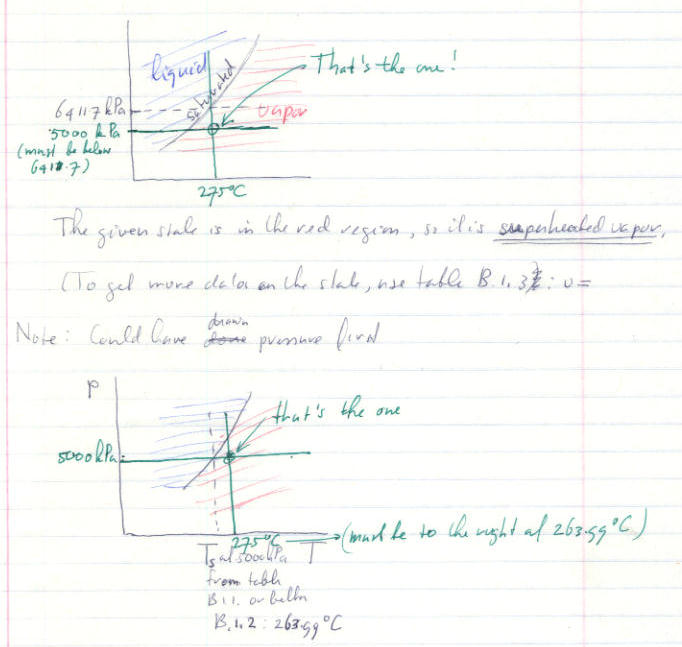 liquid
saturated
That's the one!
vapor
6411.7 kPa
5000 kPa
(must be below
6411.7)
275°C
The given state is in the red region, so it is superheated vapor.
(To get more data on the state, use table B.1.3: v=
Note: Could have drawn pressure first
P
that's the one
5000 kPa
275°C
(must be to the right of 263.99°C)
Ts at 5000 kPa
T
from table
B.1.1. or better
B.1.2: 263.99°C